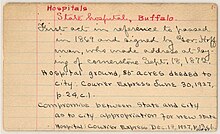 Hospitals
State hospital, Buffalo.
First act in reference to passed
in 1869 and signed by Gov. Hoff-
man, who made address at lay-
ing of cornerstone Sept. 18, 1872.
Hospital grounds, 85 acres deeded to
city. Courier Express June 30, 1927,
p. 24, c. 1.
Compromise between State and city
as to city appropriation for new State
Hospital: Courier Express Dec. 17, 1927,